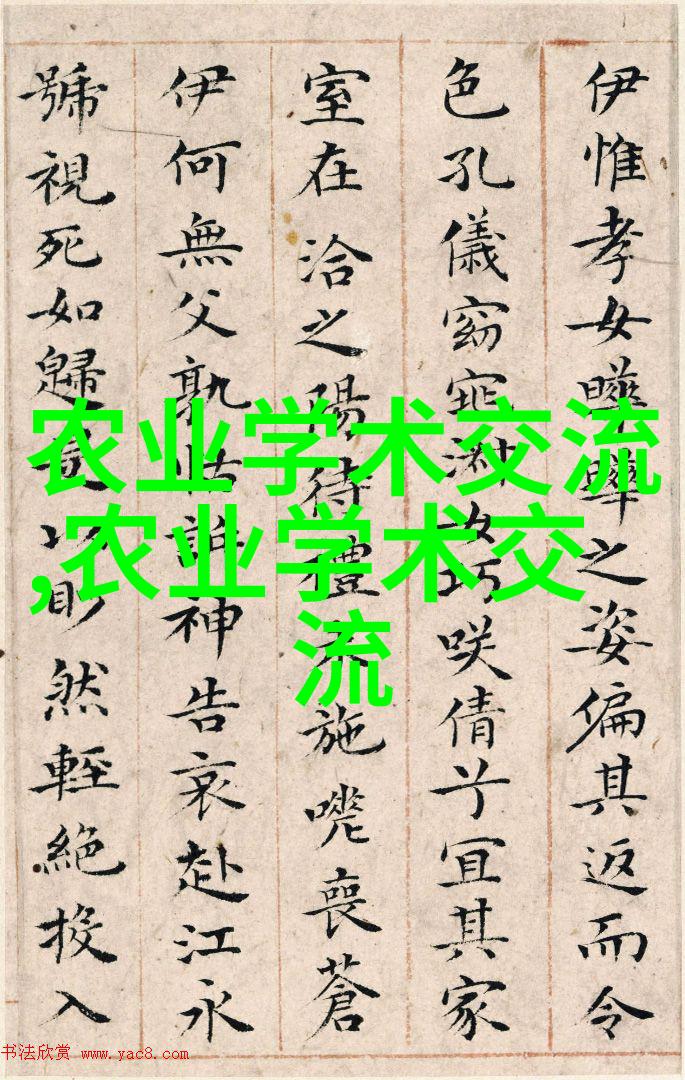 伊惟孝女曄曄之姿偏其返而令
色孔儀窈窕淑女巧咲倩兮宜其家
室在洽之陽待禮未施嗟喪蒼
伊何無父孰怙訴神告哀赴江永
號視死如歸是以眇然輕絕投入
农业学术交流
,农业学术交
流
书法欣赏 www.yac8.com